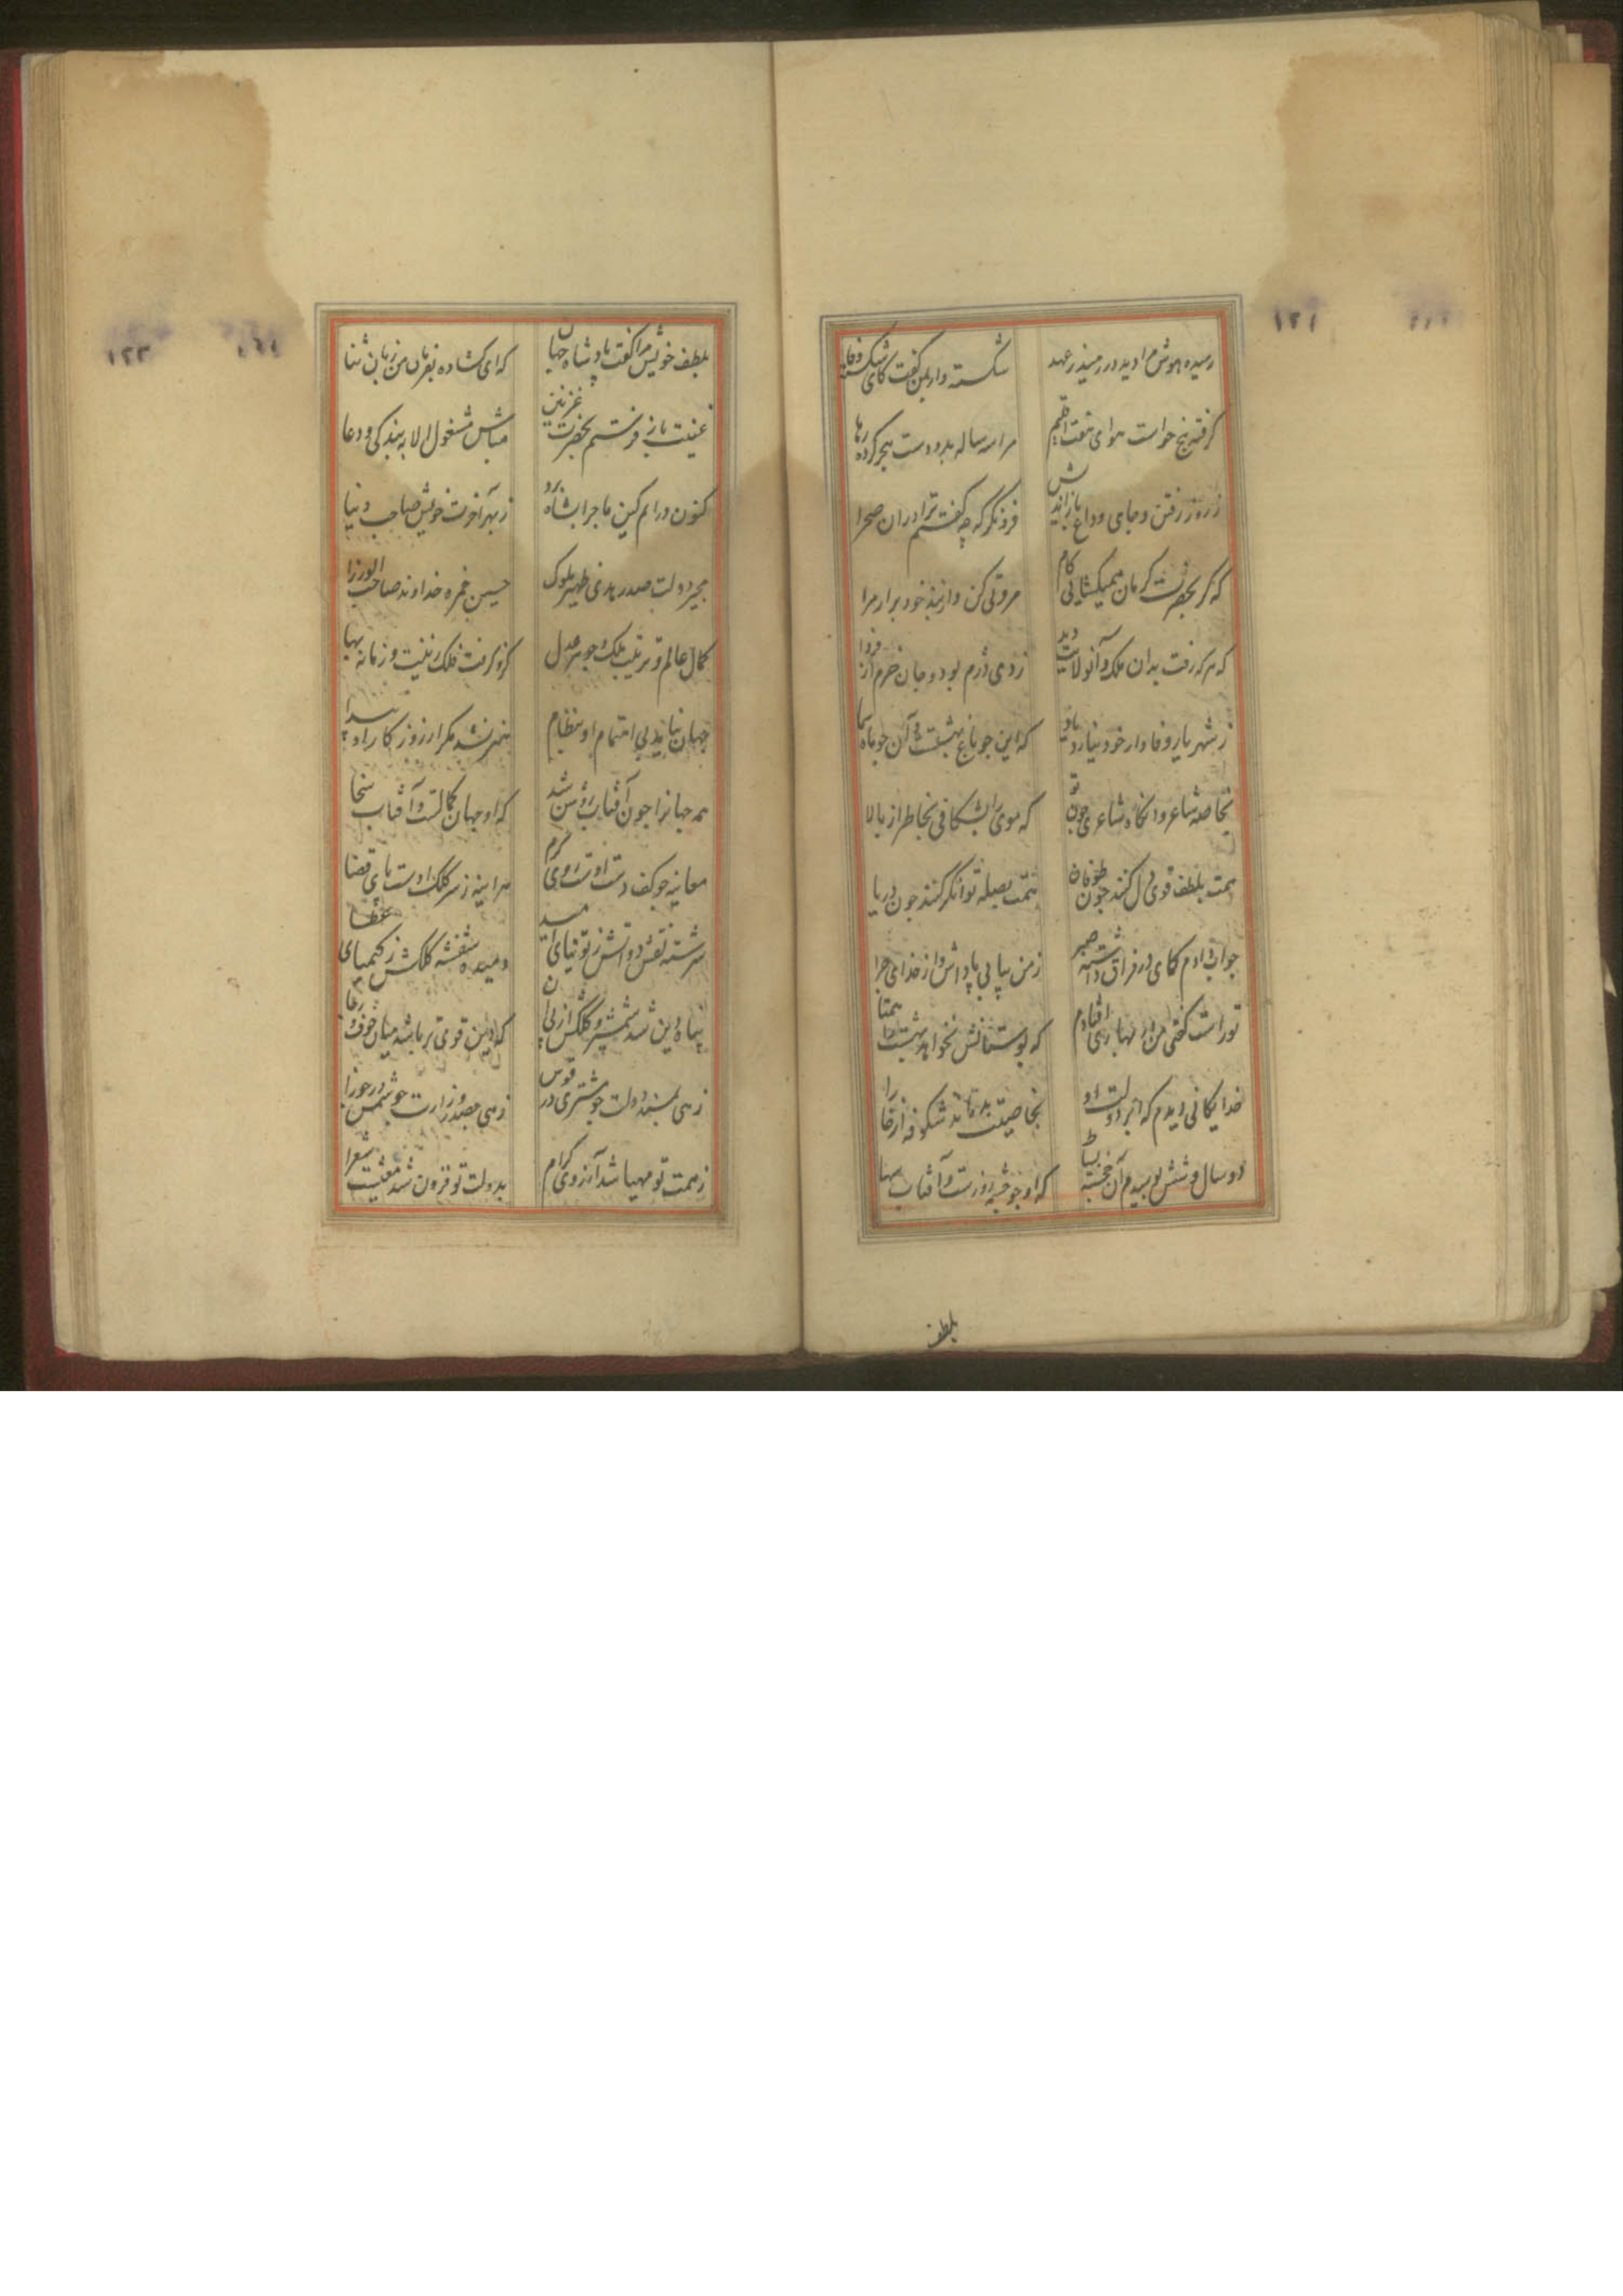 رسیده هوش مرا دید در رمیذ ز عهد
شکسته وار بمن گفت کای
گرفته پنج حواست هوای هفت اقلیم
مرا سه ساله بدرود دست هجر کرده رها
ز روز رفتن و جای وداع باز اندیش
فرو نگر که چه گفتم ترا دران صحرا
که گر بحضرت کرمان همیکشایی کام
مروتی کن و از بند خود برار مرا
که هر که رفت بدان ملک و آن ولایت دید
ز دی دژم بود و جان خرم از فردا
ز شهریار وفادار خود نیارد یاد
که این جو باغ بهشتست و آن جو ماه سما
بخاصه شاعر وانکاه شاعری جون تو
که موی را بشکافی بخاطر از بالا
همت بلطف قوی دل کنند جون طوفان
همت بصله توانگر کنند جون دریا
جواب دادم کای در فراق داشته صبر
ز من بیابی پاداش و از خدای جزا
تو راست گفتی من در بهاری افتادم
که بوستانش نخواهد بهشت را همتا
خدایکانی دیدم که ابر دولت او
بخاصیت بدماند شکوفه از خارا
دو سال و شش بوسیدم آن خجسته بساط
که او جو جشمه روزست و آفتاب بها
بلطف
بلطف خویش مرا گفت پادشاه جهان
که ای کشاده بفرمان من زبان ثنا
غنیت باز فرستم بحضرت غزنین
مباش مشغول الا ببندگی و دعا
کنون درایم کین ماجرا بشاه رو
ز بهر آخرت خویش صاحب دنیا
مجیر دولت صدر هدی ظهیر ملوک
حسین حمزه خداوند صاحب الوزرا
کمال عالم و ترتیب ملک و جوهر عدل
کزو گرفت فلک زینت و زمانه بها
جهان نیابد بی اهتمام او نظام
هنر نشد مکر از روزکار او پیدا
همه جهانرا جون آفتاب روشن شد
که او جهان کمالست و آفتاب سخا
معاینه جو کف دست اوست روی کرم
هراینه ز سر کلک اوست پای قضا
سرشته نقش دواتش ز توتیای امید
دمیده بنفشه کلکش ز کیمیای عطا
پناه دین شد شمشیر و کلکش از پی آن
که دین قوی تر باشد میان خوف و رجا
زهی بمسند دولت جو مشتری در قوس
زهی بصدر وزارت جو شمس در جوزا
ز همت تو مهیا شد آرزوی کرام
بدولت تو فزون شد معیشت شعرا